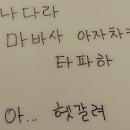 나다라
마바사 아자차카
타파하
아... 헷갈려